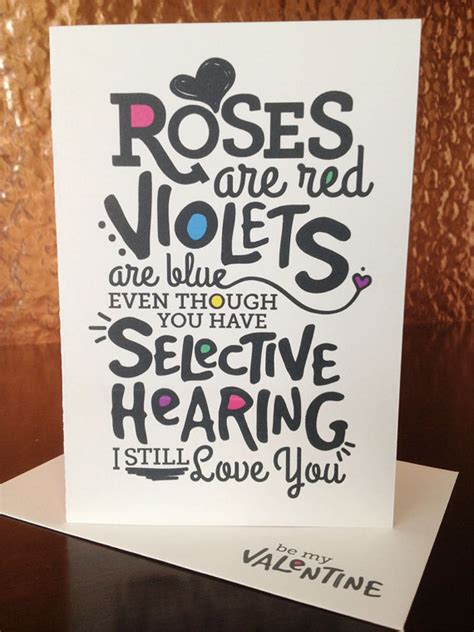 ROSES
are red
VIOLETS
are blue
EVEN THOUGH
YOU HAVE
SELeCTIVE
HeARING
I STILL Love You
be my
VALeNTINE